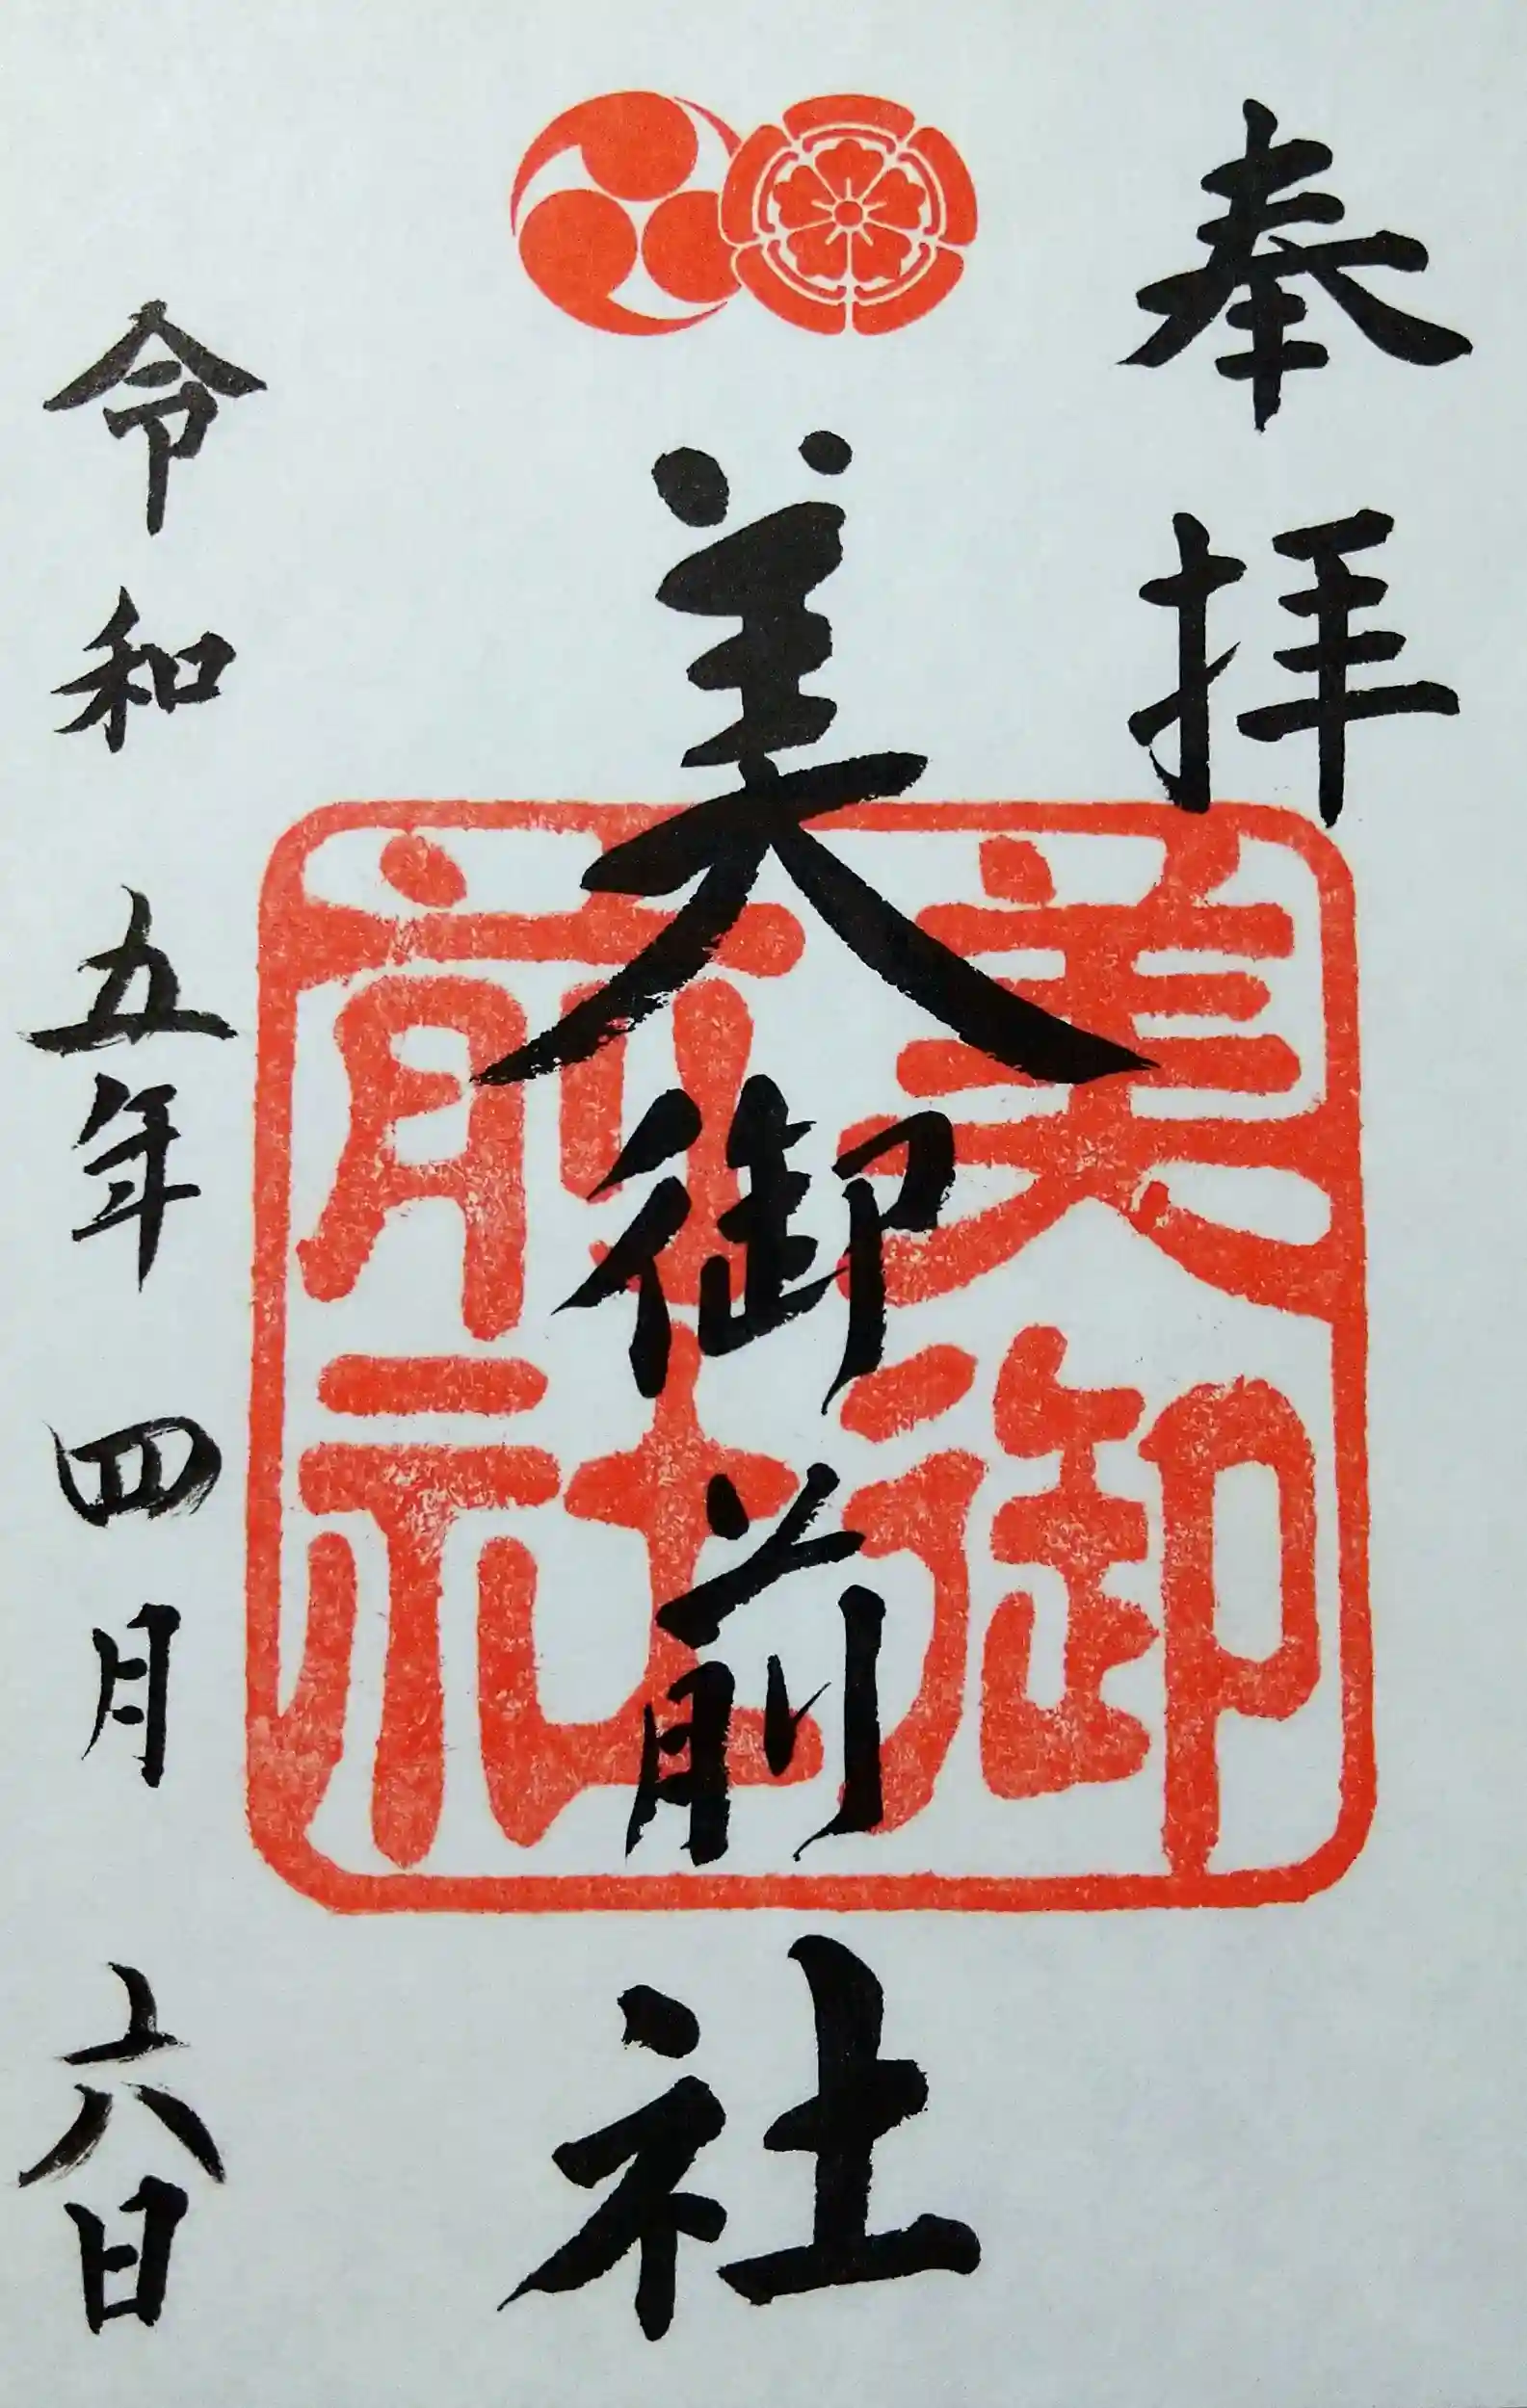 奉拝
美御前社
美御前社
令和五年四月六日